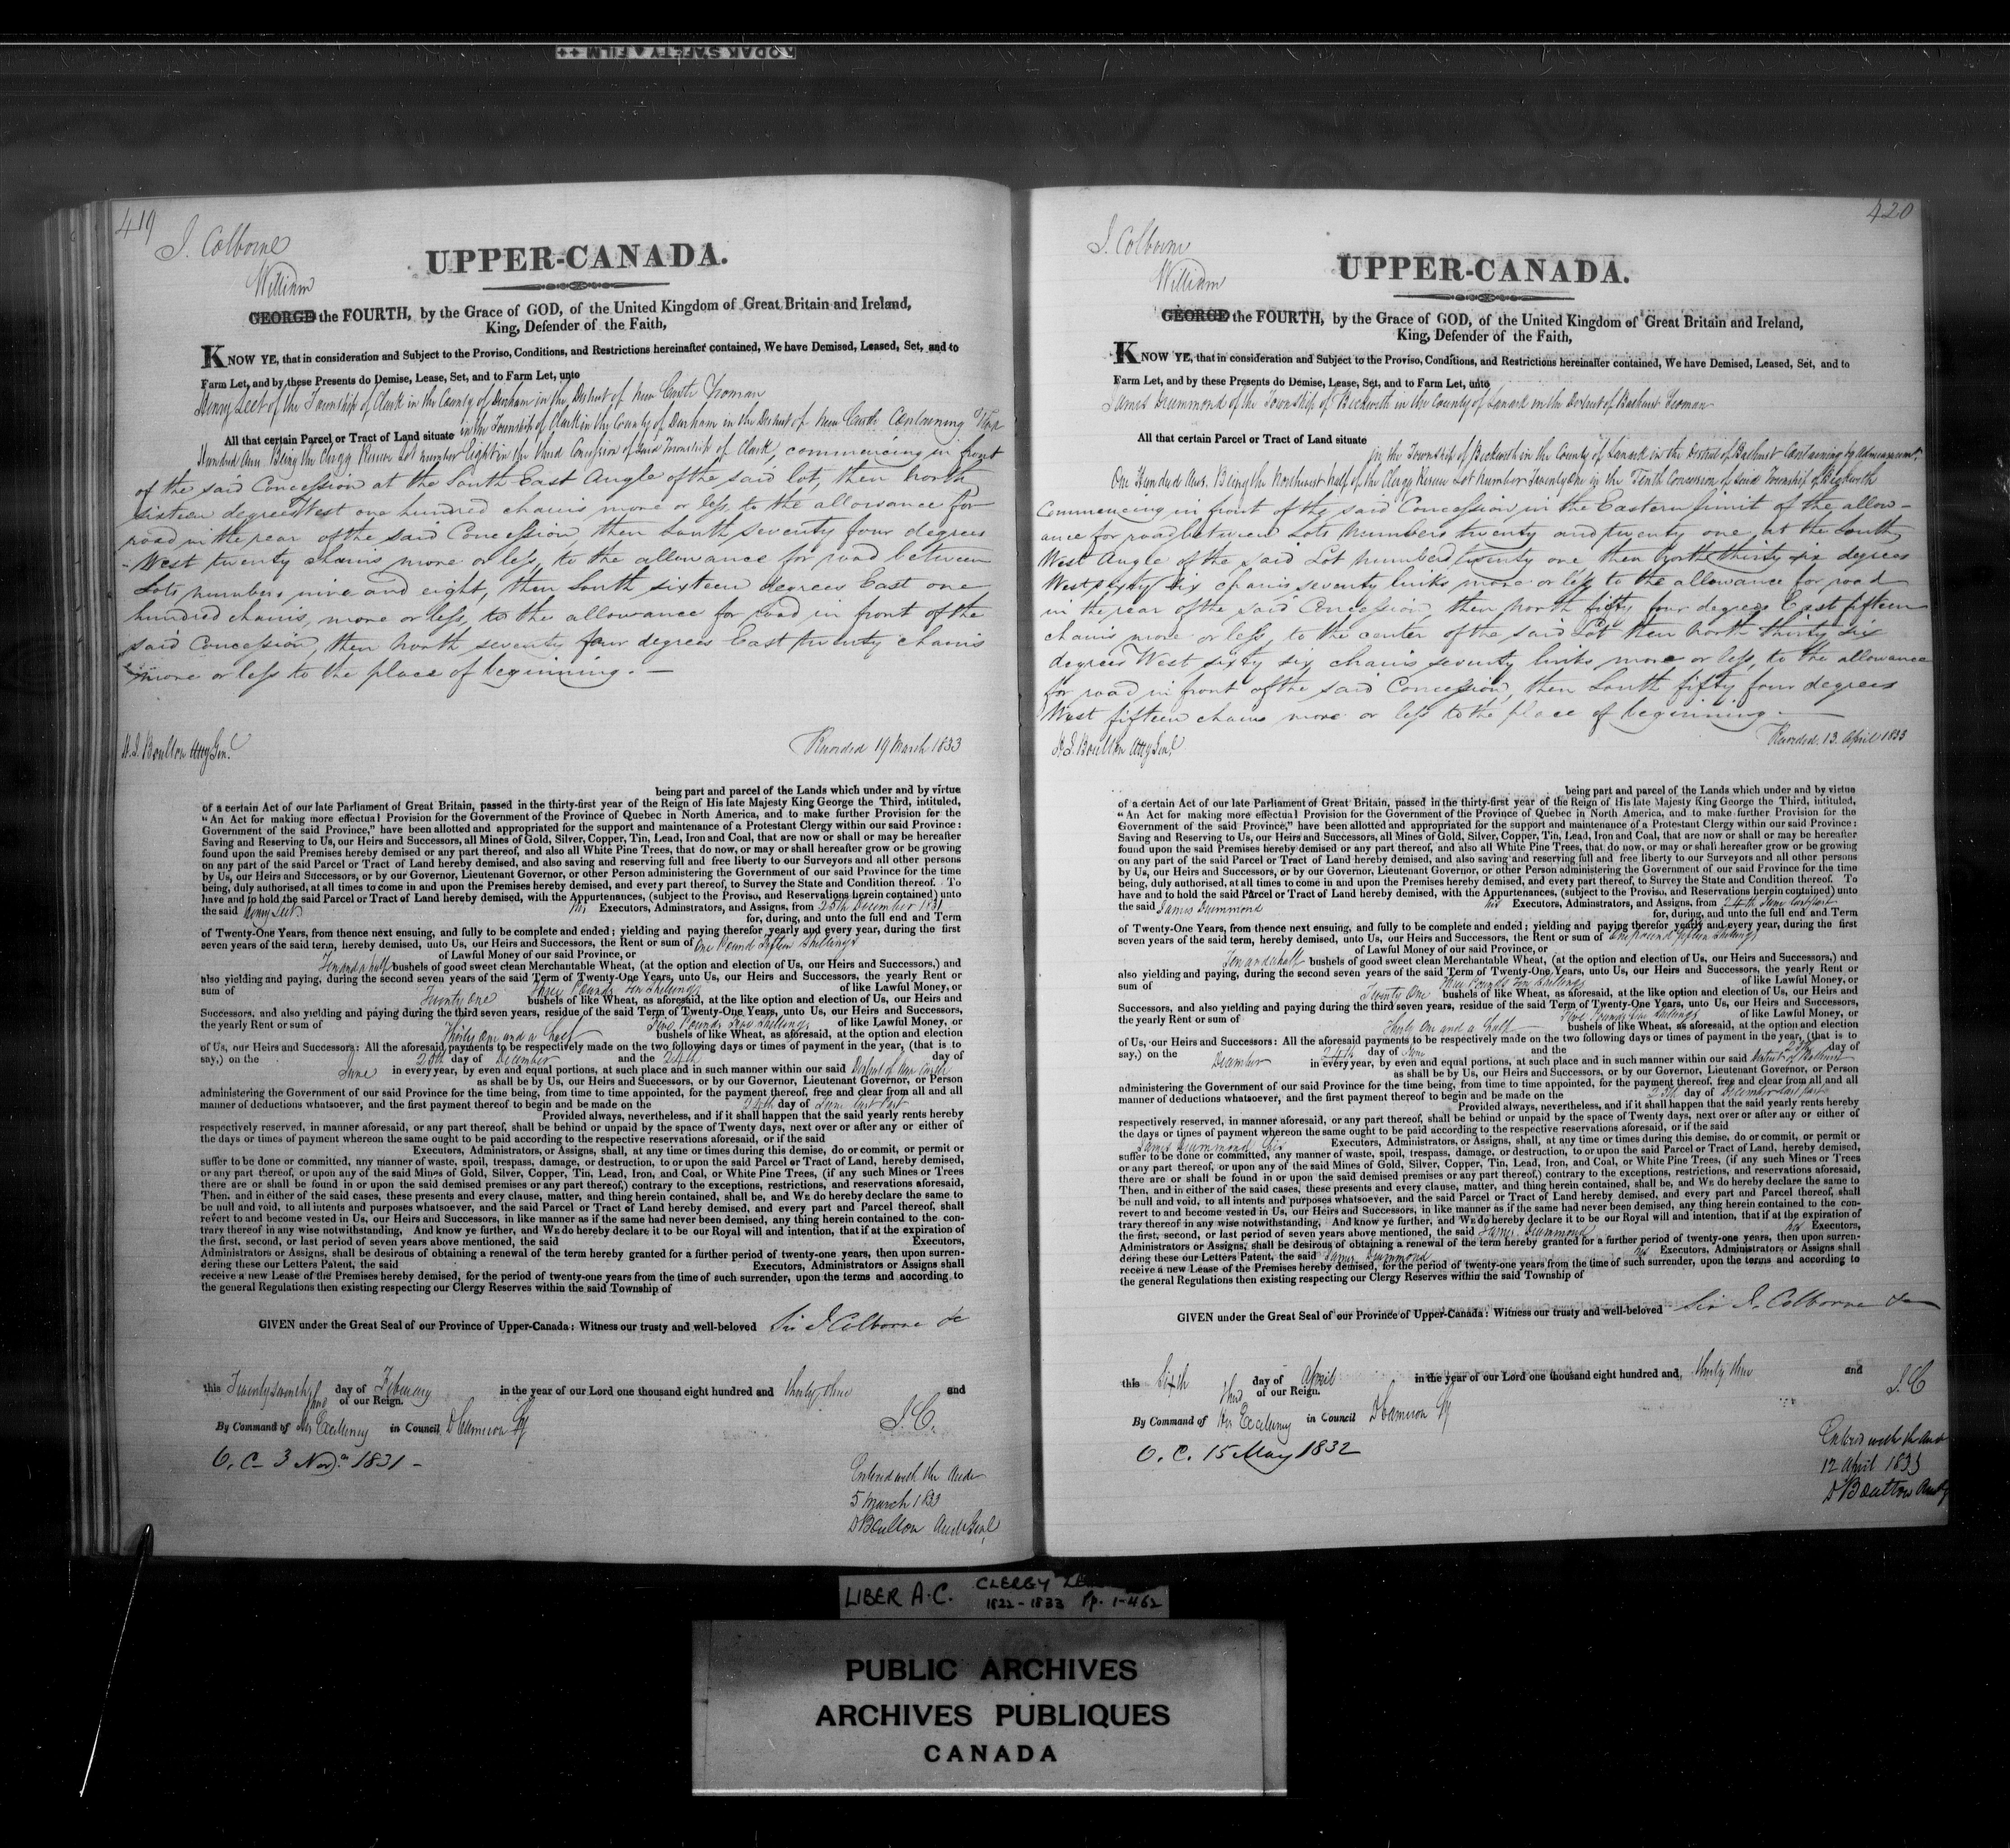 KODAK SAFETY FILM ++
419
J. Colborne
UPPER-CANADA.
William
GEORGE the FOURTH, by the Grace of GOD, of the United Kingdom of Great Britain and Ireland,
King, Defender of the Faith,
KNOW YE, that in consideration and Subject to the Proviso, Conditions, and Restrictions hereinafter contained, We have Demised, Leased, Set, and to
Farm Let, and by these Presents do Demise, Lease, Set, and to Farm Let, unto
Henry Leet of the Township of Clark in the County of Durham in the District of New Castle Yeoman
All that certain Parcel or Tract of Land situate in the Township of Clark in the County of Durham in the District of New Castle Containing Two
Hundred Acres Being the Clergy Reserve Lot number Eight in the third Concession of said Township of Clark, commencing in front
of the said Concession at the South East Angle of the said lot, then North
sixteen degrees West one hundred chains more or less, to the allowance for
road in the rear of the said Concession, then South seventy four degrees
West twenty chains more or less, to the allowance for road between
Lots numbers nine and eight, then South sixteen degrees East one
hundred chains, more or less, to the allowance for road in front of the
said Concession, then North seventy four degrees East twenty chains
more or less to the place of beginning. —
H. J. Boulton Atty Genl
Recorded 19 March 1833
being part and parcel of the Lands which under and by virtue
of a certain Act of our late Parliament of Great Britain, passed in the thirty-first year of the Reign of His late Majesty King George the Third, intituled,
"An Act for making more effectual Provision for the Government of the Province of Quebec in North America, and to make further Provision for the
Government of the said Province," have been allotted and appropriated for the support and maintenance of a Protestant Clergy within our said Province:
Saving and Reserving to Us, our Heirs and Successors, all Mines of Gold, Silver, Copper, Tin, Lead, Iron and Coal, that are now or shall or may be hereafter
found upon the said Premises hereby demised or any part thereof, and also all White Pine Trees, that do now, or may or shall hereafter grow or be growing
on any part of the said Parcel or Tract of Land hereby demised, and also saving and reserving full and free liberty to our Surveyors and all other persons
by Us, our Heirs and Successors, or by our Governor, Lieutenant Governor, or other Person administering the Government of our said Province for the time
being, duly authorised, at all times to come in and upon the Premises hereby demised, and every part thereof, to Survey the State and Condition thereof. To
have and to hold the said Parcel or Tract of Land hereby demised, with the Appurtenances, (subject to the Proviso, and Reservations herein contained) unto
the said Henry Leet his Executors, Adminstrators, and Assigns, from 25th December 1831
for, during, and unto the full end and Term
of Twenty-One Years, from thence next ensuing, and fully to be complete and ended; yielding and paying therefor yearly and every year, during the first
seven years of the said term, hereby demised, unto Us, our Heirs and Successors, the Rent or sum of One Pound Fifteen Shillings
of Lawful Money of our said Province, or
Ten and a half bushels of good sweet clean Merchantable Wheat, (at the option and election of Us, our Heirs and Successors,) and
also yielding and paying, during the second seven years of the said Term of Twenty-One Years, unto Us, our Heirs and Successors, the yearly Rent or
sum of Three Pounds Ten Shillings of like Lawful Money, or
Twenty One bushels of like Wheat, as aforesaid, at the like option and election of Us, our Heirs and
Successors, and also yielding and paying during the third seven years, residue of the said Term of Twenty-One Years, unto Us, our Heirs and Successors,
the yearly Rent or sum of Five Pounds Five Shillings of like Lawful Money, or
Thirty One and a half bushels of like Wheat, as aforesaid, at the option and election
of Us, our Heirs and Successors: All the aforesaid payments to be respectively made on the two following days or times of payment in the year, (that is to
say,) on the 25th day of December and the 24th day of
June in every year, by even and equal portions, at such place and in such manner within our said District of New Castle
as shall be by Us, our Heirs and Successors, or by our Governor, Lieutenant Governor, or Person
administering the Government of our said Province for the time being, from time to time appointed, for the payment thereof, free and clear from all and all
manner of deductions whatsoever, and the first payment thereof to begin and be made on the 24th day of June last past
Provided always, nevertheless, and if it shall happen that the said yearly rents hereby
respectively reserved, in manner aforesaid, or any part thereof, shall be behind or unpaid by the space of Twenty days, next over or after any or either of
the days or times of payment whereon the same ought to be paid according to the respective reservations aforesaid, or if the said
Executors, Administrators, or Assigns, shall, at any time or times during this demise, do or commit, or permit or
suffer to be done or committed, any manner of waste, spoil, trespass, damage, or destruction, to or upon the said Parcel or Tract of Land, hereby demised,
or any part thereof, or upon any of the said Mines of Gold, Silver, Copper, Tin, Lead, Iron, and Coal, or White Pine Trees, (if any such Mines or Trees
there are or shall be found in or upon the said demised premises or any part thereof,) contrary to the exceptions, restrictions, and reservations aforesaid,
Then, and in either of the said cases, these presents and every clause, matter, and thing herein contained, shall be, and WE do hereby declare the same to
be null and void, to all intents and purposes whatsoever, and the said Parcel or Tract of Land hereby demised, and every part and Parcel thereof, shall
revert to and become vested in Us, our Heirs and Successors, in like manner as if the same had never been demised, any thing herein contained to the con-
trary thereof in any wise notwithstanding, And know ye further, and WE do hereby declare it to be our Royal will and intention, that if at the expiration of
the first, second, or last period of seven years above mentioned, the said Executors,
Administrators or Assigns, shall be desirous of obtaining a renewal of the term hereby granted for a further period of twenty-one years, then upon surren-
dering these our Letters Patent, the said Executors, Administrators or Assigns shall
receive a new Lease of the Premises hereby demised, for the period of twenty-one years from the time of such surrender, upon the terms and according to
the general Regulations then existing respecting our Clergy Reserves within the said Township of
GIVEN under the Great Seal of our Province of Upper-Canada: Witness our trusty and well-beloved Sir J Colborne &c
this Twenty seventh day of February in the year of our Lord one thousand eight hundred and thirty three and
third of our Reign.
J. C.
By Command of His Excellency in Council D Cameron Sy
O. C. 3 Nov. 1831 -
Entered with the Audr
5 March 1833
D Boulton Audr Genl
420
J. Colborne
UPPER-CANADA.
William
GEORGE the FOURTH, by the Grace of GOD, of the United Kingdom of Great Britain and Ireland,
King, Defender of the Faith,
KNOW YE, that in consideration and Subject to the Proviso, Conditions, and Restrictions hereinafter contained, We have Demised, Leased, Set, and to
Farm Let, and by these Presents do Demise, Lease, Set, and to Farm Let, unto
James Drummond of the Township of Beckwith in the County of Lanark in the District of Bathurst Yeoman
All that certain Parcel or Tract of Land situate
in the Township of Beckwith in the County of Lanark in the District of Bathurst Containing by Admeasurement
One Hundred Acres. Being the Northwest half of the Clergy Reserve Lot Number Twenty One in the Tenth Concession of said Township of Beckwith
Commencing in front of the said Concession in the Eastern limit of the allow-
ance for road between Lots Numbers twenty and twenty one, at the South
West Angle of the said Lot number twenty one then North thirty six degrees
West sixty six chains seventy links more or less to the allowance for road
in the rear of the said Concession, then North fifty four degrees East fifteen
chains more or less, to the center of the said Lot then North thirty six
degrees West sixty six chains seventy links more or less, to the allowance
for road in front of the said Concession, then South fifty four degrees
West fifteen chains more or less to the place of beginning. —
H. J. Boulton Atty Genl
Recorded, 13. April 1833
being part and parcel of the Lands which under and by virtue
of a certain Act of our late Parliament of Great Britain, passed in the thirty-first year of the Reign of His late Majesty King George the Third, intituled,
"An Act for making more effectual Provision for the Government of the Province of Quebec in North America, and to make further Provision for the
Government of the said Province," have been allotted and appropriated for the support and maintenance of a Protestant Clergy within our said Province:
Saving and Reserving to Us, our Heirs and Successors, all Mines of Gold, Silver, Copper, Tin, Lead, Iron and Coal, that are now or shall or may be hereafter
found upon the said Premises hereby demised or any part thereof, and also all White Pine Trees, that do now, or may or shall hereafter grow or be growing
on any part of the said Parcel or Tract of Land hereby demised, and also saving and reserving full and free liberty to our Surveyors and all other persons
by Us, our Heirs and Successors, or by our Governor, Lieutenant Governor, or other Person administering the Government of our said Province for the time
being, duly authorised, at all times to come in and upon the Premises hereby demised, and every part thereof, to Survey the State and Condition thereof. To
have and to hold the said Parcel or Tract of Land hereby demised, with the Appurtenances, (subject to the Proviso, and Reservations herein contained) unto
the said James Drummond his Executors, Adminstrators, and Assigns, from 24th June last past
for, during, and unto the full end and Term
of Twenty-One Years, from thence next ensuing, and fully to be complete and ended; yielding and paying therefor yearly and every year, during the first
seven years of the said term, hereby demised, unto Us, our Heirs and Successors, the Rent or sum of One pound fifteen Shillings
of Lawful Money of our said Province, or
Ten and a half bushels of good sweet clean Merchantable Wheat, (at the option and election of Us, our Heirs and Successors,) and
also yielding and paying, during the second seven years of the said Term of Twenty-One Years, unto Us, our Heirs and Successors, the yearly Rent or
sum of Three Pounds Ten Shillings of like Lawful Money, or
Twenty One bushels of like Wheat, as aforesaid, at the like option and election of Us, our Heirs and
Successors, and also yielding and paying during the third seven years, residue of the said Term of Twenty-One Years, unto Us, our Heirs and Successors,
the yearly Rent or sum of Five Pounds Five Shillings of like Lawful Money, or
Thirty One and a half bushels of like Wheat, as aforesaid, at the option and election
of Us, our Heirs and Successors: All the aforesaid payments to be respectively made on the two following days or times of payment in the year, (that is to
say,) on the 24th day of June and the 25th day of
December in every year, by even and equal portions, at such place and in such manner within our said District of Bathurst
as shall be by Us, our Heirs and Successors, or by our Governor, Lieutenant Governor, or Person
administering the Government of our said Province for the time being, from time to time appointed, for the payment thereof, free and clear from all and all
manner of deductions whatsoever, and the first payment thereof to begin and be made on the 25th day of December last past
Provided always, nevertheless, and if it shall happen that the said yearly rents hereby
respectively reserved, in manner aforesaid, or any part thereof, shall be behind or unpaid by the space of Twenty days, next over or after any or either of
the days or times of payment whereon the same ought to be paid according to the respective reservations aforesaid, or if the said
James Drummond his Executors, Administrators, or Assigns, shall, at any time or times during this demise, do or commit, or permit or
suffer to be done or committed, any manner of waste, spoil, trespass, damage, or destruction, to or upon the said Parcel or Tract of Land, hereby demised,
or any part thereof, or upon any of the said Mines of Gold, Silver, Copper, Tin, Lead, Iron, and Coal, or White Pine Trees, (if any such Mines or Trees
there are or shall be found in or upon the said demised premises or any part thereof,) contrary to the exceptions, restrictions, and reservations aforesaid,
Then, and in either of the said cases, these presents and every clause, matter, and thing herein contained, shall be, and WE do hereby declare the same to
be null and void, to all intents and purposes whatsoever, and the said Parcel or Tract of Land hereby demised, and every part and Parcel thereof, shall
revert to and become vested in Us, our Heirs and Successors, in like manner as if the same had never been demised, any thing herein contained to the con-
trary thereof in any wise notwithstanding, And know ye further, and WE do hereby declare it to be our Royal will and intention, that if at the expiration of
the first, second, or last period of seven years above mentioned, the said James Drummond his Executors,
Administrators or Assigns, shall be desirous of obtaining a renewal of the term hereby granted for a further period of twenty-one years, then upon surren-
dering these our Letters Patent, the said James Drummond his Executors, Administrators or Assigns shall
receive a new Lease of the Premises hereby demised, for the period of twenty-one years from the time of such surrender, upon the terms and according to
the general Regulations then existing respecting our Clergy Reserves within the said Township of
GIVEN under the Great Seal of our Province of Upper-Canada: Witness our trusty and well-beloved Sir J. Colborne &c
this Sixth day of April in the year of our Lord one thousand eight hundred and, thirty three and
third of our Reign.
J. C
By Command of His Excellency in Council D Cameron Sy
O. C. 15 May 1832
Entered with the Audr
12 April 1833
D Boulton Audr
LIBER A.C. CLERGY
1822-1833 Pp. 1-462
PUBLIC ARCHIVES
ARCHIVES PUBLIQUES
CANADA